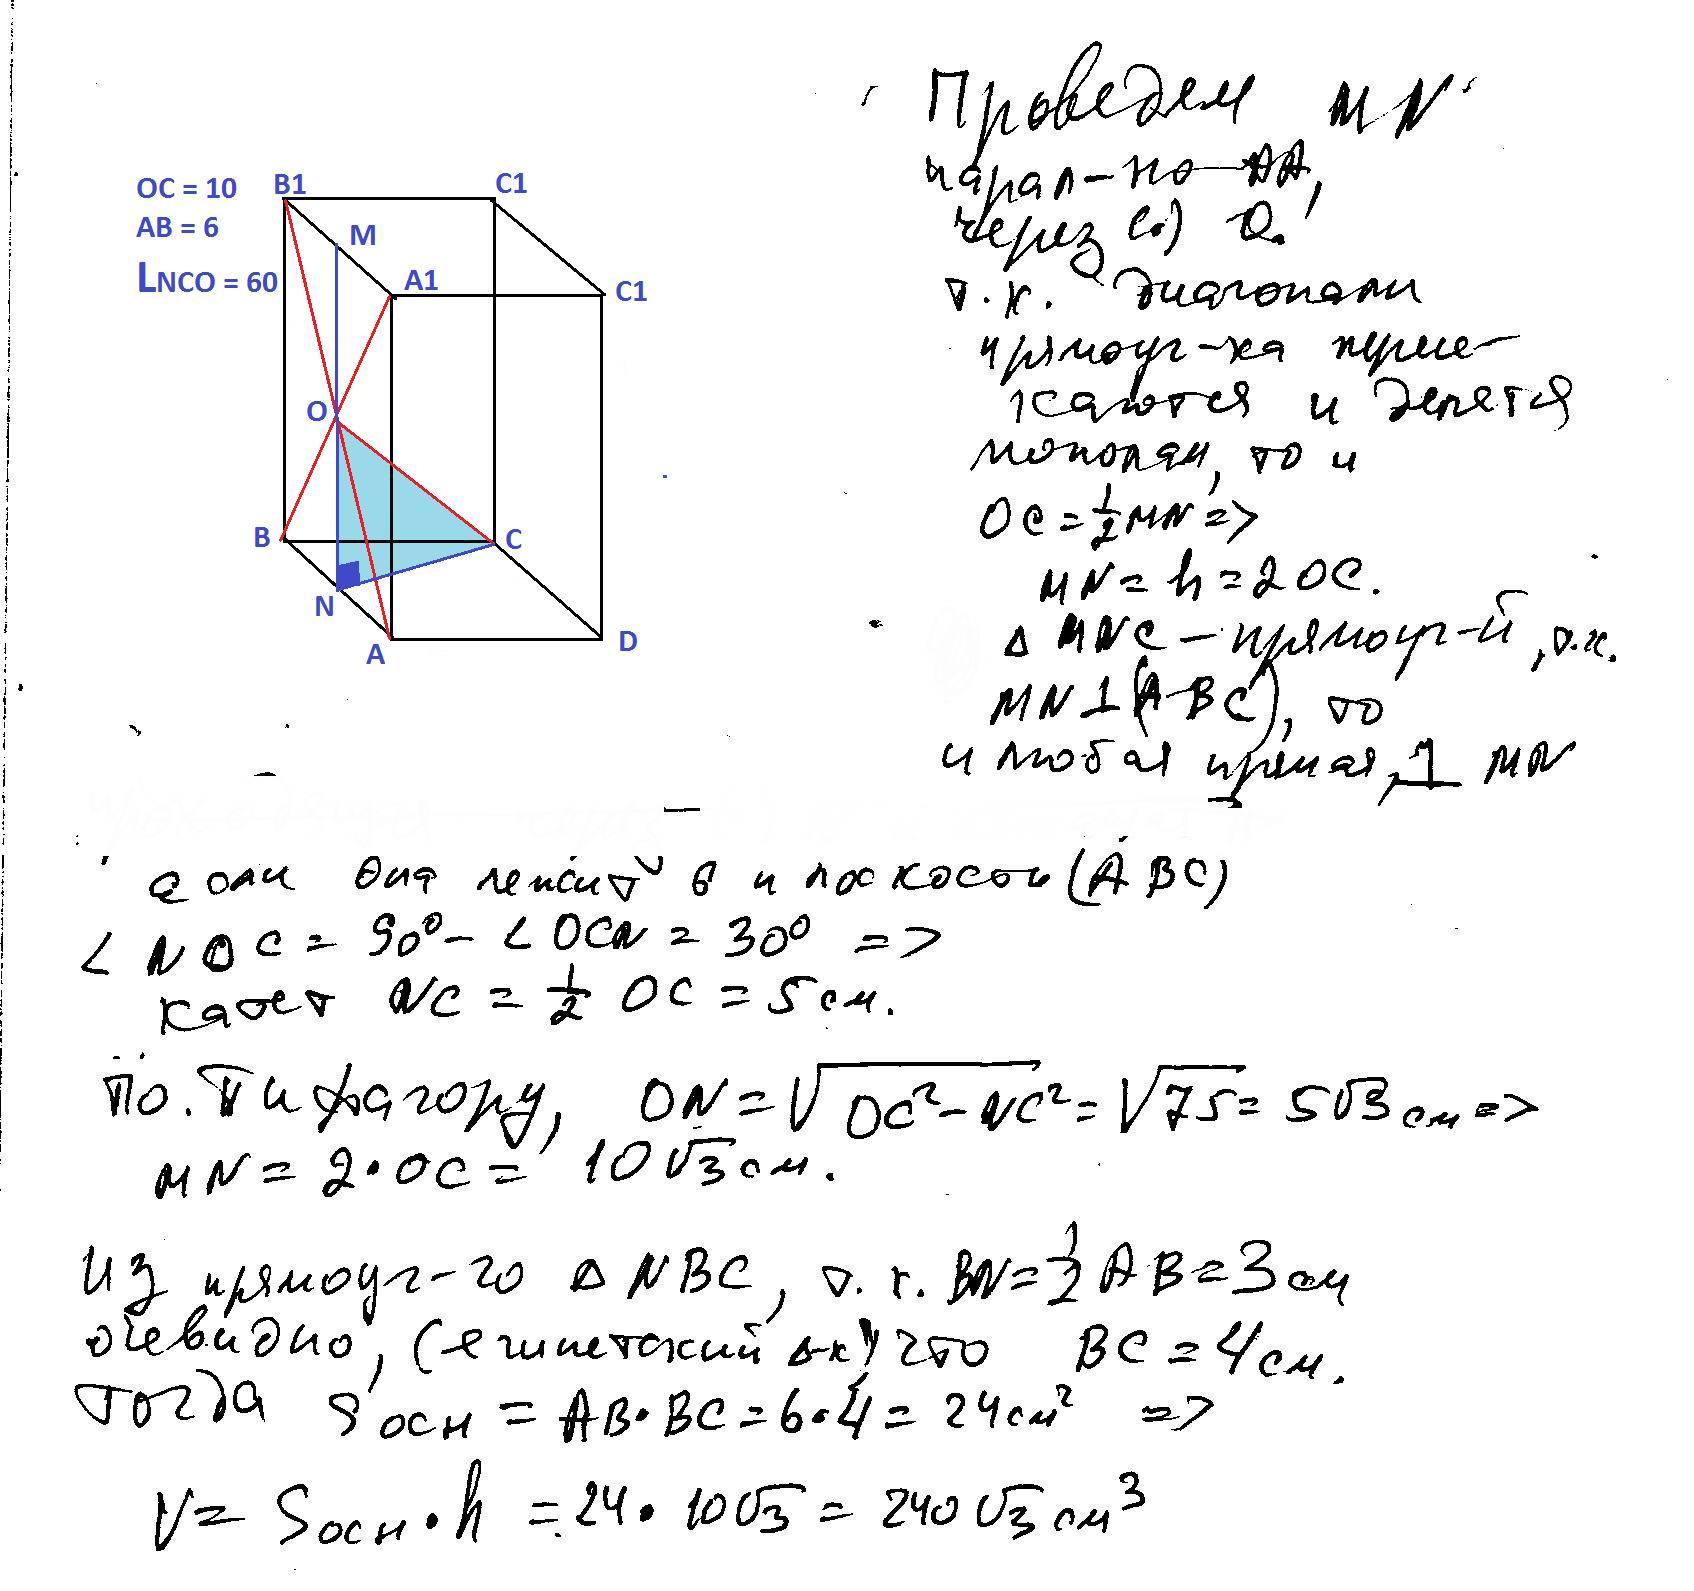 OC = 10
AB = 6
LNCO = 60
B1
C1
M
A1
C1
O
B
C
N
A
D
Проведем MN
парал-но AA,
через (·) O.
т.к. диагонали
прямоуг-ка пересе-
каются и делятся
пополам, то и
OC = 1/2 MN =>
MN = h = 2 OC.
Δ MNC – прямоуг-й, т.к.
MN ⊥ (ABC), то
и любая прямая, ⊥ MN
если она лежит в плоскости (ABC)
∠ NOC = 90° - ∠ OCN = 30° =>
катет NC = 1/2 OC = 5 см.
По. Пифагору, ON = √OC² - NC² = √75 = 5√3 см =>
MN = 2 · OC = 10√3 см.
Из прямоуг-го Δ NBC, т.к. BN = 1/2 AB = 3 см
очевидно, (египетский Δ-к) что BC = 4 см.
тогда Sосн = AB · BC = 6 · 4 = 24 см² =>
V = Sосн · h = 24 · 10√3 = 240√3 см³